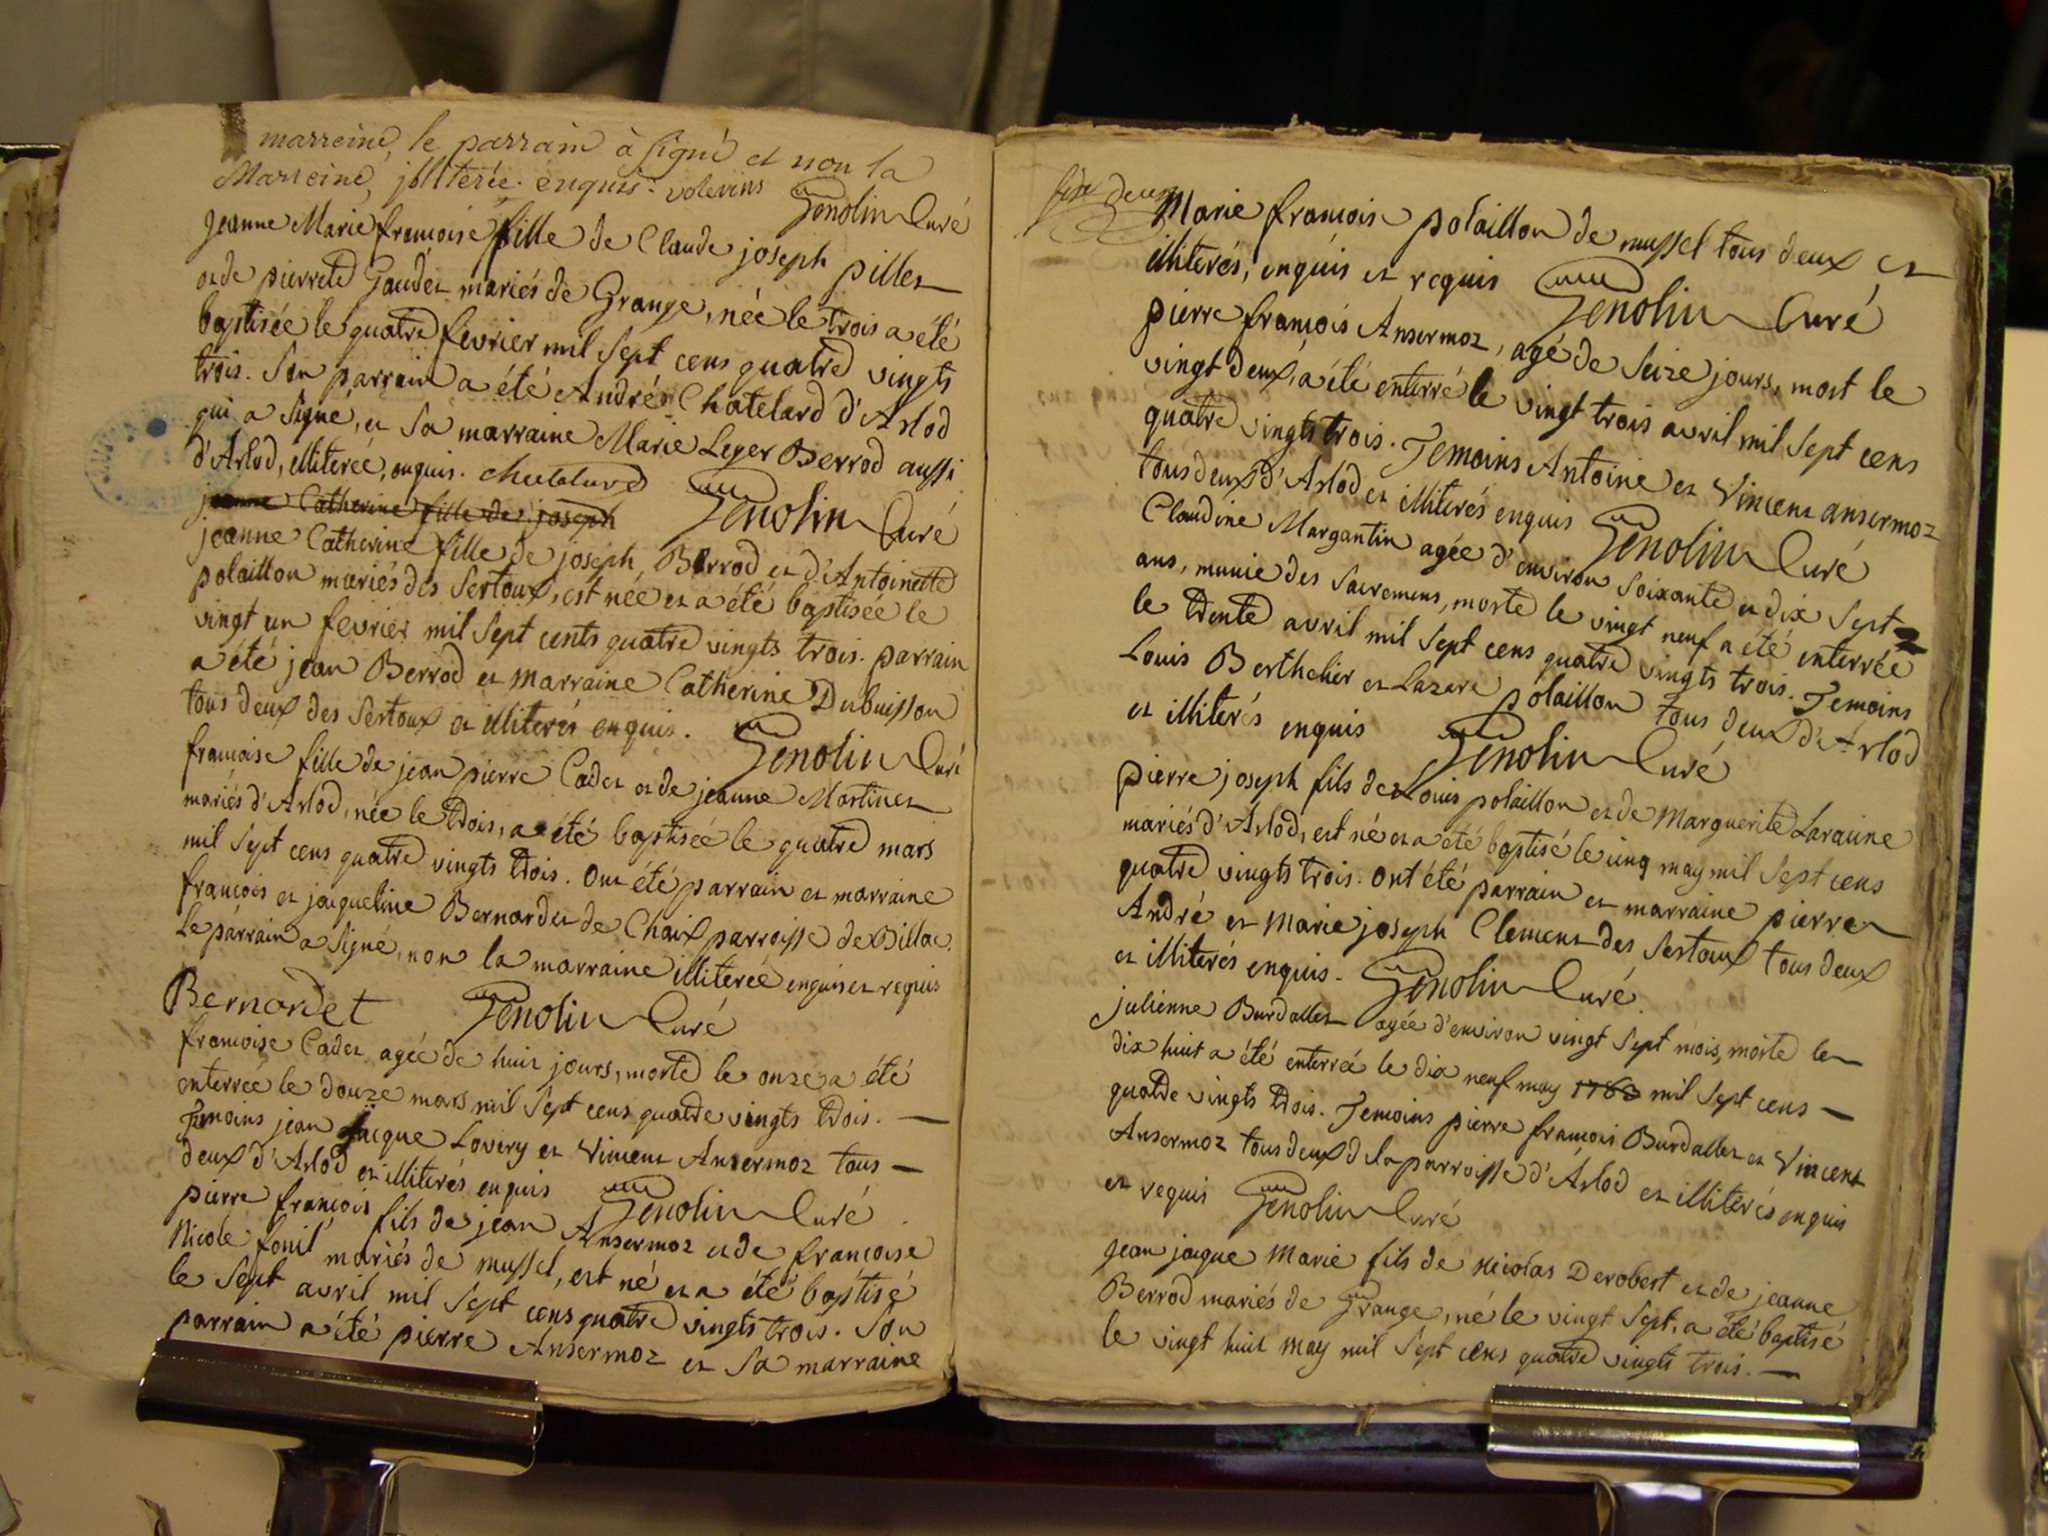 marreine, le parrain à signé et non la
Marreine, jlliterée. enquis. volerins Genolin Curé
jeanne Marie françoise fille de Claude joseph pillet
et de pierrete Gaudet mariés de Grange, née le trois a été
baptisée le quatre fevrier mil sept cens quatre vingts
trois. Son parrain a été André Chatelard d'Arlod
qui a signé, et sa marraine Marie Leger Berrod aussi
d'Arlod, illiterée, enquis. chatelard Genolin Curé
jeanne Catherine fille de joseph
jeanne Catherine fille de joseph Berrod et d'Antoinette
polaillon mariés des Sertoux, est née et a été baptisée le
vingt un fevrier mil sept cents quatre vingts trois. parrain
a été jean Berrod et marraine Catherine Dubuisson
tous deux des Sertoux et illiterés enquis. Genolin Curé
françoise fille de jean pierre Cadet et de jeanne Martinet
mariés d'Arlod, née le trois, a été baptisée le quatre mars
mil sept cens quatre vingts trois. Ont été parrain et marraine
françois et jacqueline Bernardet de Chaix parroisse de Billac.
Le parrain a signé, non la marraine illiterée enquis et requis
Bernardet Genolin Curé
françoise Cadet agée de huit jours, morte le onze a été
enterrée le douze mars mil sept cens quatre vingts trois. —
Temoins jean jacque Lovery et Vincent Ansermoz tous —
deux d'Arlod et illiterés enquis Genolin Curé
pierre françois fils de jean Ansermoz et de françoise
Nicole fonil mariés de mussel, est né et a été baptisé
le sept avril mil sept cens quatre vingts trois. Son
parrain a été pierre Ansermoz et sa marraine
deux
Marie françoise polaillon de mussel tous deux et
illiterés, enquis et requis Genolin Curé
pierre françois Ansermoz, agé de seize jours, mort le
vingt deux, a été enterré le vingt trois avril mil sept cens
quatre vingts trois. Temoins Antoine et Vincent ansermoz
tous deux d'Arlod et illiterés enquis Genolin Curé
Claudine Margantin agée d'environ soixante et dix sept
ans, munie des sacremens, morte le vingt neuf a été enterrée
le trente avril mil sept cens quatre vingts trois. Temoins
Louis Berthelier et Lazare polaillon tous deux d'Arlod
et illiterés enquis Genolin Curé
pierre joseph fils de Louis polaillon et de Marguerite Laraine
mariés d'Arlod, est né et a été baptisé le cinq may mil sept cens
quatre vingts trois. Ont été parrain et marraine pierre
André et Marie joseph Clement des Sertoux tous deux
et illiterés enquis. Genolin Curé
julienne Burdallet agée d'environ vingt sept mois, morte le
dix huit a été enterrée le dix neuf may 1783 mil sept cens —
quatre vingts trois. Temoins pierre françois Burdallet et Vincent
Ansermoz tous deux de la parroisse d'Arlod et illiterés enquis
et requis Genolin Curé
jean jacque Marie fils de Nicolas Derobert et de jeanne
Berrod mariés de Grange, né le vingt sept, a été baptisé
le vingt huit may mil sept cens quatre vingts trois. —